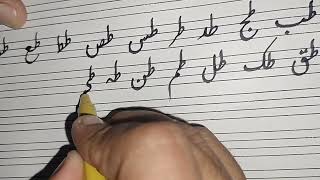 طب طج طد طر طس طص طط طع
طق طک طل طم طن طہ طی